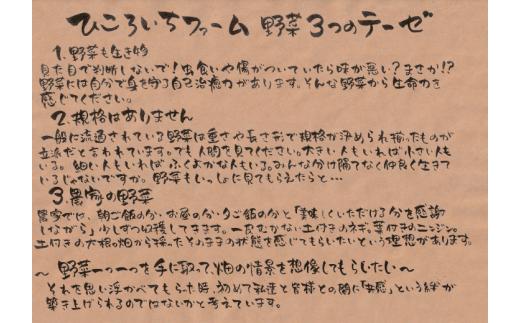 ひころいちファーム 野菜3つのテーゼ
1. 野菜も生き物
見た目で判断しないで!虫食いや傷がついていたら味が悪い?まさか!?
野菜には自分で身を守る自己治癒力があります。そんな野菜から生命力を
感じてください。
2. 規格はありません
一般に流通されている野菜は重さや長さ形で規格が決められ揃ったものが
立派だと言われています。でも人間を見てください。大きい人もいれば小さい人も
いる。細い人もいればふくよかな人もいる。みんな分け隔てなく仲良く生きて
いるじゃないですか。野菜もいっしょに見てもらえたらと…
3. 農家の野菜
農家では、朝ご飯の分・お昼の分・夕ご飯の分と「美味しくいただける分を感謝
しながら」少しずつ収穫してきます。一皮むかない土付きのネギ、葉付きのニンジン。
土付きの大根。畑から採ったそのままの状態を感じてもらいたいという理想があります。
〜 野菜一つ一つを手に取って、畑の情景を想像してもらいたい 〜
それを思い浮かべてもらった時、初めて私達と皆様との間に「共感」という絆が
築き上げられるのではないかと考えています。